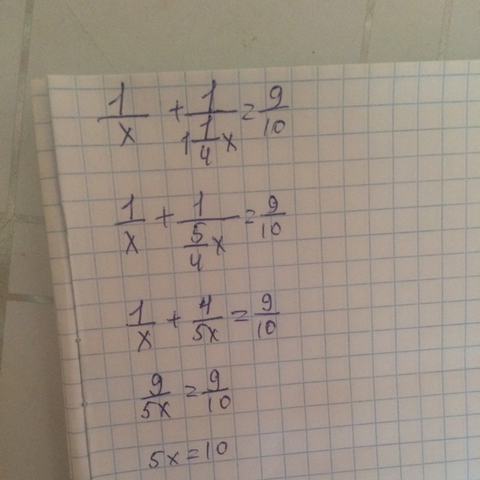 1/x + 1/(1 1/4 x) = 9/10
1/x + 1/(5/4 x) = 9/10
1/x + 4/5x = 9/10
9/5x = 9/10
5x = 10